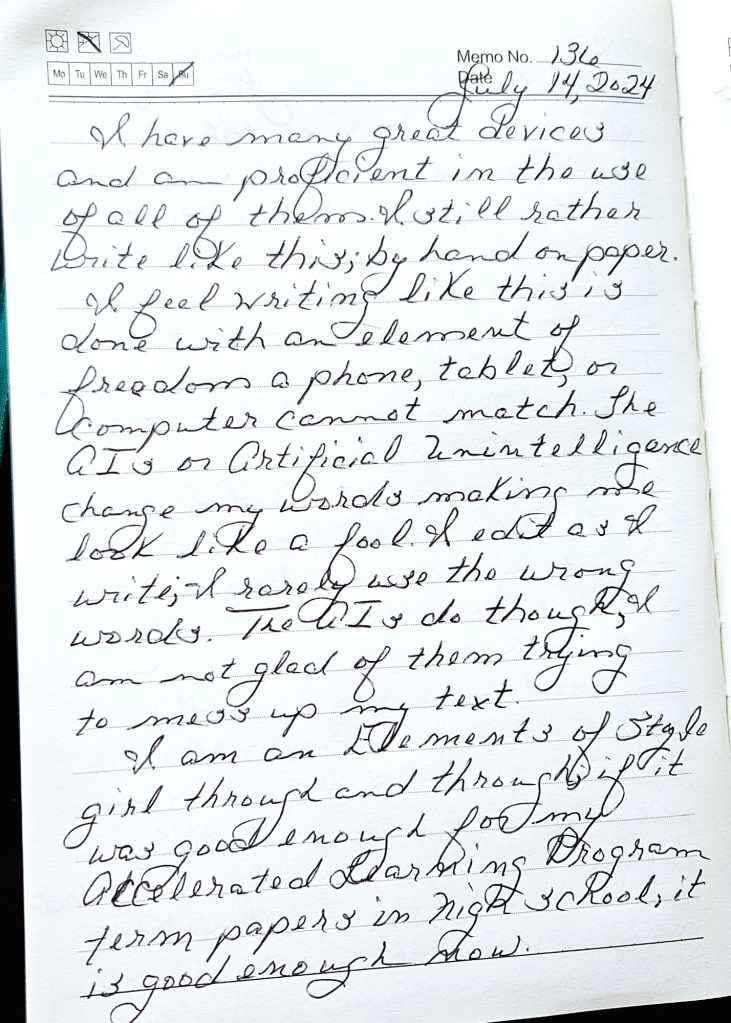 Memo No. 136
Mo Tu We Th Fr Sa Su
Date July 14, 2024
I have many great devices
and am proficient in the use
of all of them. I still rather
write like this; by hand on paper.
I feel writing like this is
done with an element of
freedom a phone, tablet, or
computer cannot match. The
AIs or Artificial Unintelligence
change my words making me
look like a fool. I edit as I
write; I rarely use the wrong
words. The AIs do though, I
am not glad of them trying
to mess up my text.
I am an Elements of Style
girl through and through; if it
was good enough for my
Accelerated Learning Program
term papers in high school, it
is good enough now.